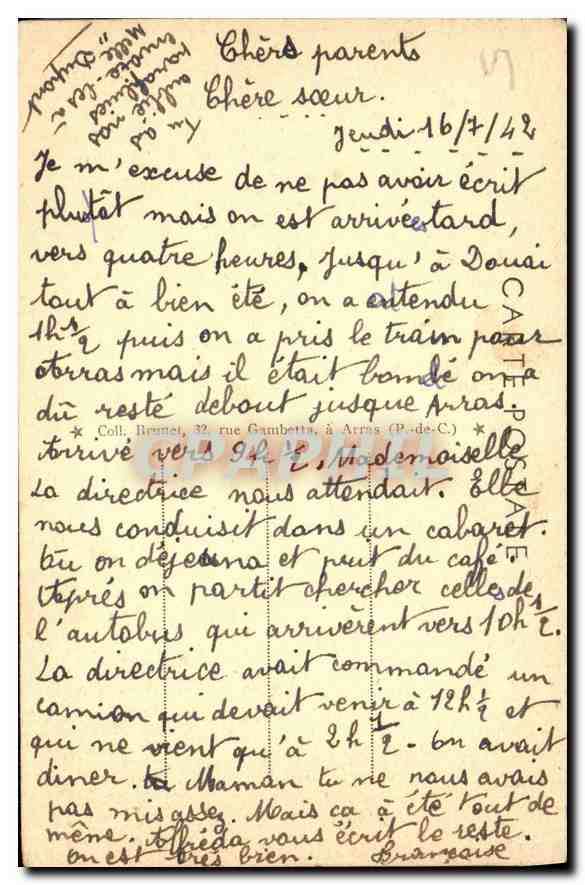 Tu as
oublié nos
parapluies
envoie-les à
Melle Dupont
Chèrs parents
Chère sœur.
Jeudi 16/7/42
Je m'excuse de ne pas avoir écrit
plutôt mais on est arrivées tard,
vers quatre heures. Jusqu'à Douai
tout à bien été, on a attendu
1h 1/2 puis on a pris le train pour
Arras mais il était bondé on a
dû resté debout jusque Arras.
Coll. Brunet, 32, rue Gambetta, à Arras (P.-de-C.)
Arrivé vers 9h 1/2, Mademoiselle
La directrice nous attendait. Elle
nous conduisit dans un cabaret.
Où on déjeuna et prit du café.
Après on partit chercher celles de
l'autobus qui arrivèrent vers 10h 1/2.
La directrice avait commandé un
camion qui devait venir à 12h 1/2 et
qui ne vient qu'à 2h 1/2 - On avait
diner. Maman tu ne nous avais
pas mis assez. Mais ca à été tout de
même. Alfréda vous écrit le reste.
On est très bien. Françoise
CARTE POSTALE
CPAPHIL